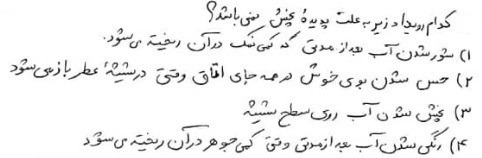 کدام رویداد زیر به علت پدیدهٔ پخش نمی باشد؟
۱) شور شدن آب بعد از مدتی که کمی نمک در آن ریخته می شود.
۲) حس شدن بوی خوش در همه جای اتاق وقتی در شیشهٔ عطر باز می شود
۳) پخش شدن آب روی سطح شیشه
۴) رنگی شدن آب بعد از مدتی وقتی کمی جوهر در آن ریخته می شود